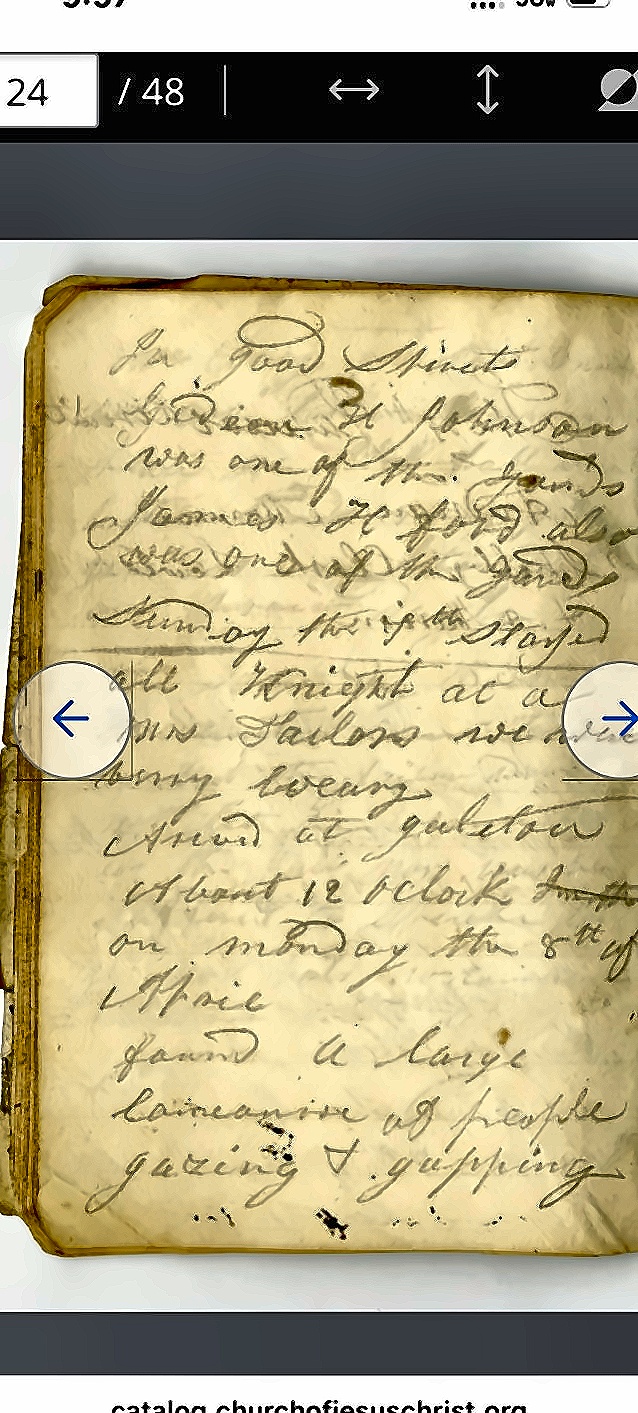 24 / 48
In good Spirets
Gideon H Johnson
was one of the gards
James H ford also
was one of the gards
Sunday the 7th stayed
all Knight at a
Mrs Tailors we
very weary
Arived at galeton
About 12 Oclock
on monday the 8th of
Aprie
found a large
of people
gazing & gapping
catalog.churchofjesuschrist.org